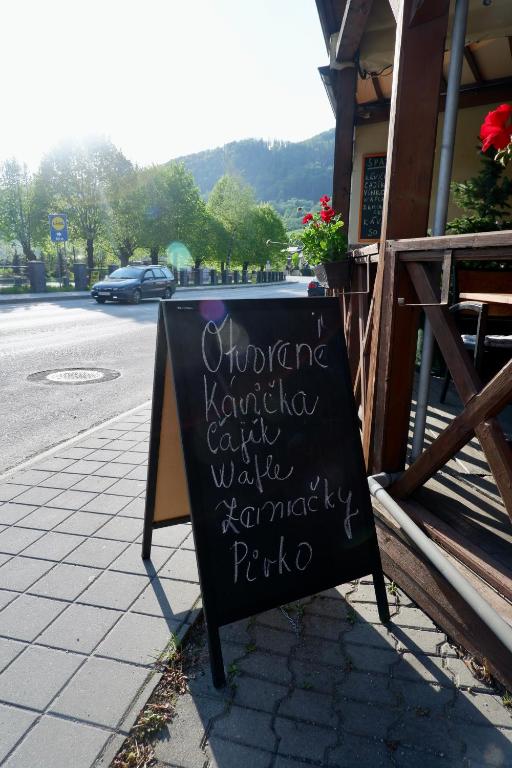 Otvorené
Kávička
Čajík
Wafle
Zemiačky
Pivko